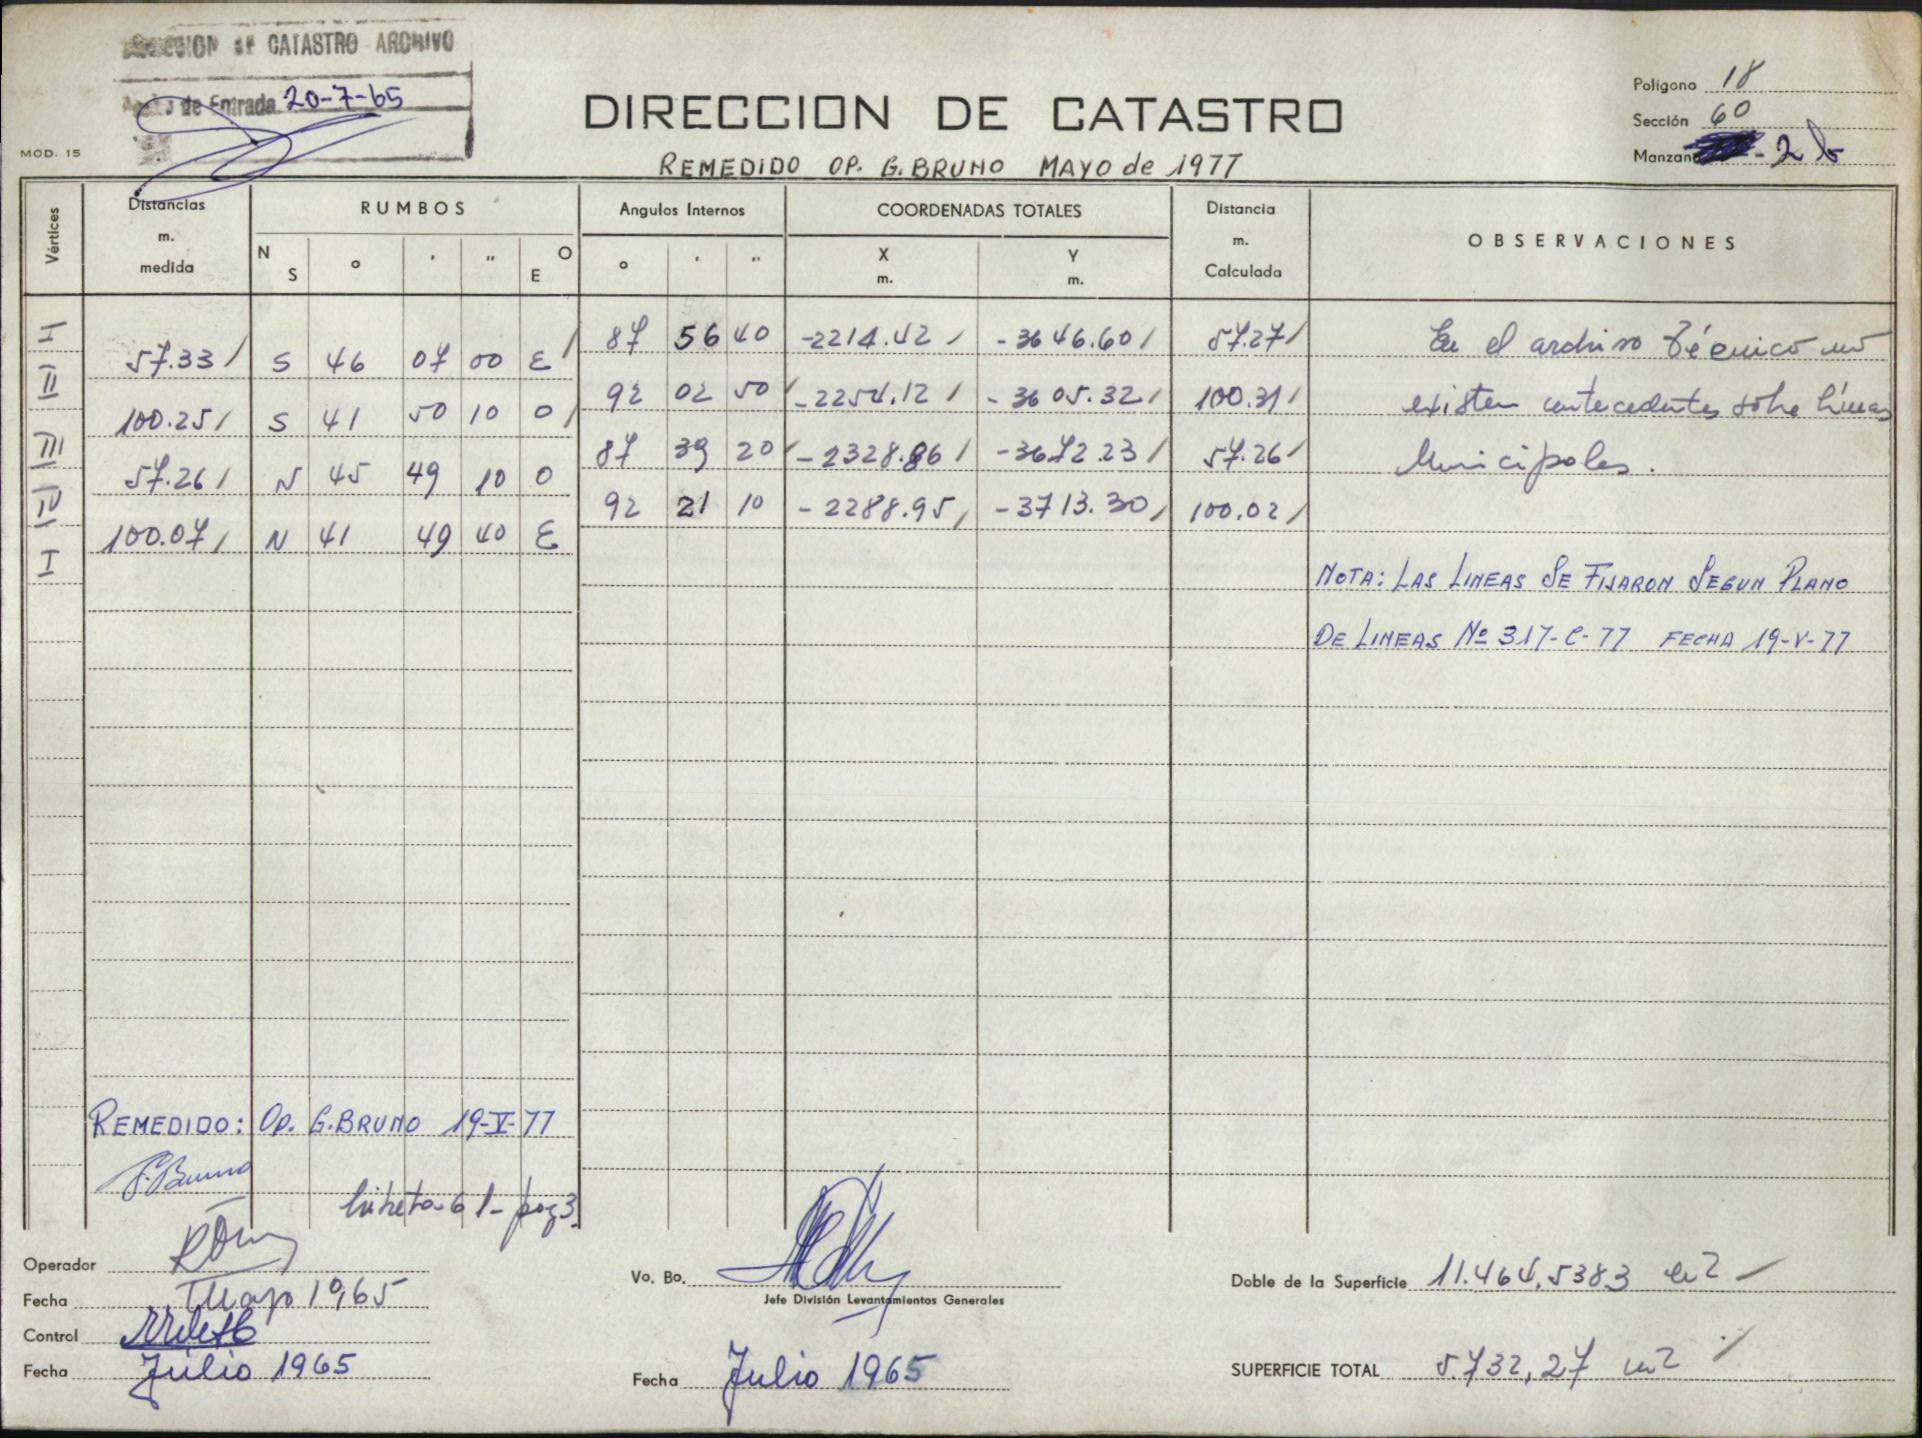 DE CATASTRO ARCHIVO
de Entrada 20-7-65
MOD. 15
DIRECCION DE CATASTRO
REMEDIDO OP. G. BRUNO MAYO de 1977
Polígono 18
Sección 60
Manzana - 2 b
Vértices
Distancias m. medida
RUMBOS
N S ° ' " O E
Angulos Internos
° ' "
COORDENADAS TOTALES
X m. Y m.
Distancia m. Calculada
OBSERVACIONES
I 87 56 40 -2214.42 / -3646.60 / 57.27 / En el archivo Técnico no
57.33 / S 46 07 00 E /
II 92 02 50 / -2254.12 / -3605.32 / 100.31 / existen antecedentes sobre líneas
100.25 / S 41 50 10 O /
III 87 39 20 / -2328.86 / -3672.23 / 57.26 / Municipales.
57.26 / N 45 49 10 O
IV 92 21 10 -2288.95 / -3713.30 / 100.02 /
100.07 / N 41 49 40 E
I
NOTA: LAS LINEAS SE FIJARON SEGUN PLANO
DE LINEAS Nº 317-C-77 FECHA 19-V-77
REMEDIDO: OP. G. BRUNO 19-V-77
G. Bruno
libreta 61 - pag 3
Operador
Fecha Mayo 1965
Control
Fecha Julio 1965
Vo. Bo.
Jefe División Levantamientos Generales
Fecha Julio 1965
Doble de la Superficie 11.464,5383 m2
SUPERFICIE TOTAL 5.732,27 m2